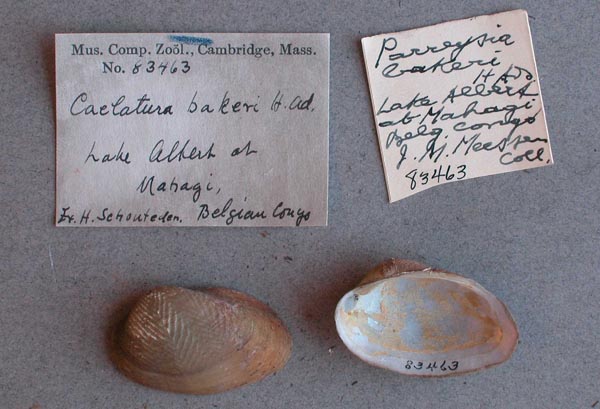 Mus. Comp. Zoöl., Cambridge, Mass.
No. 83463
Caelatura bakeri H. Ad.
Lake Albert at
Mahagi,
Dr. H. Schouteden. Belgian Congo
Parreysia
bakeri
H. Ads
Lake Albert
at Mahagi
Belg. Congo
J. M. Meesters
Coll.
83463
83463